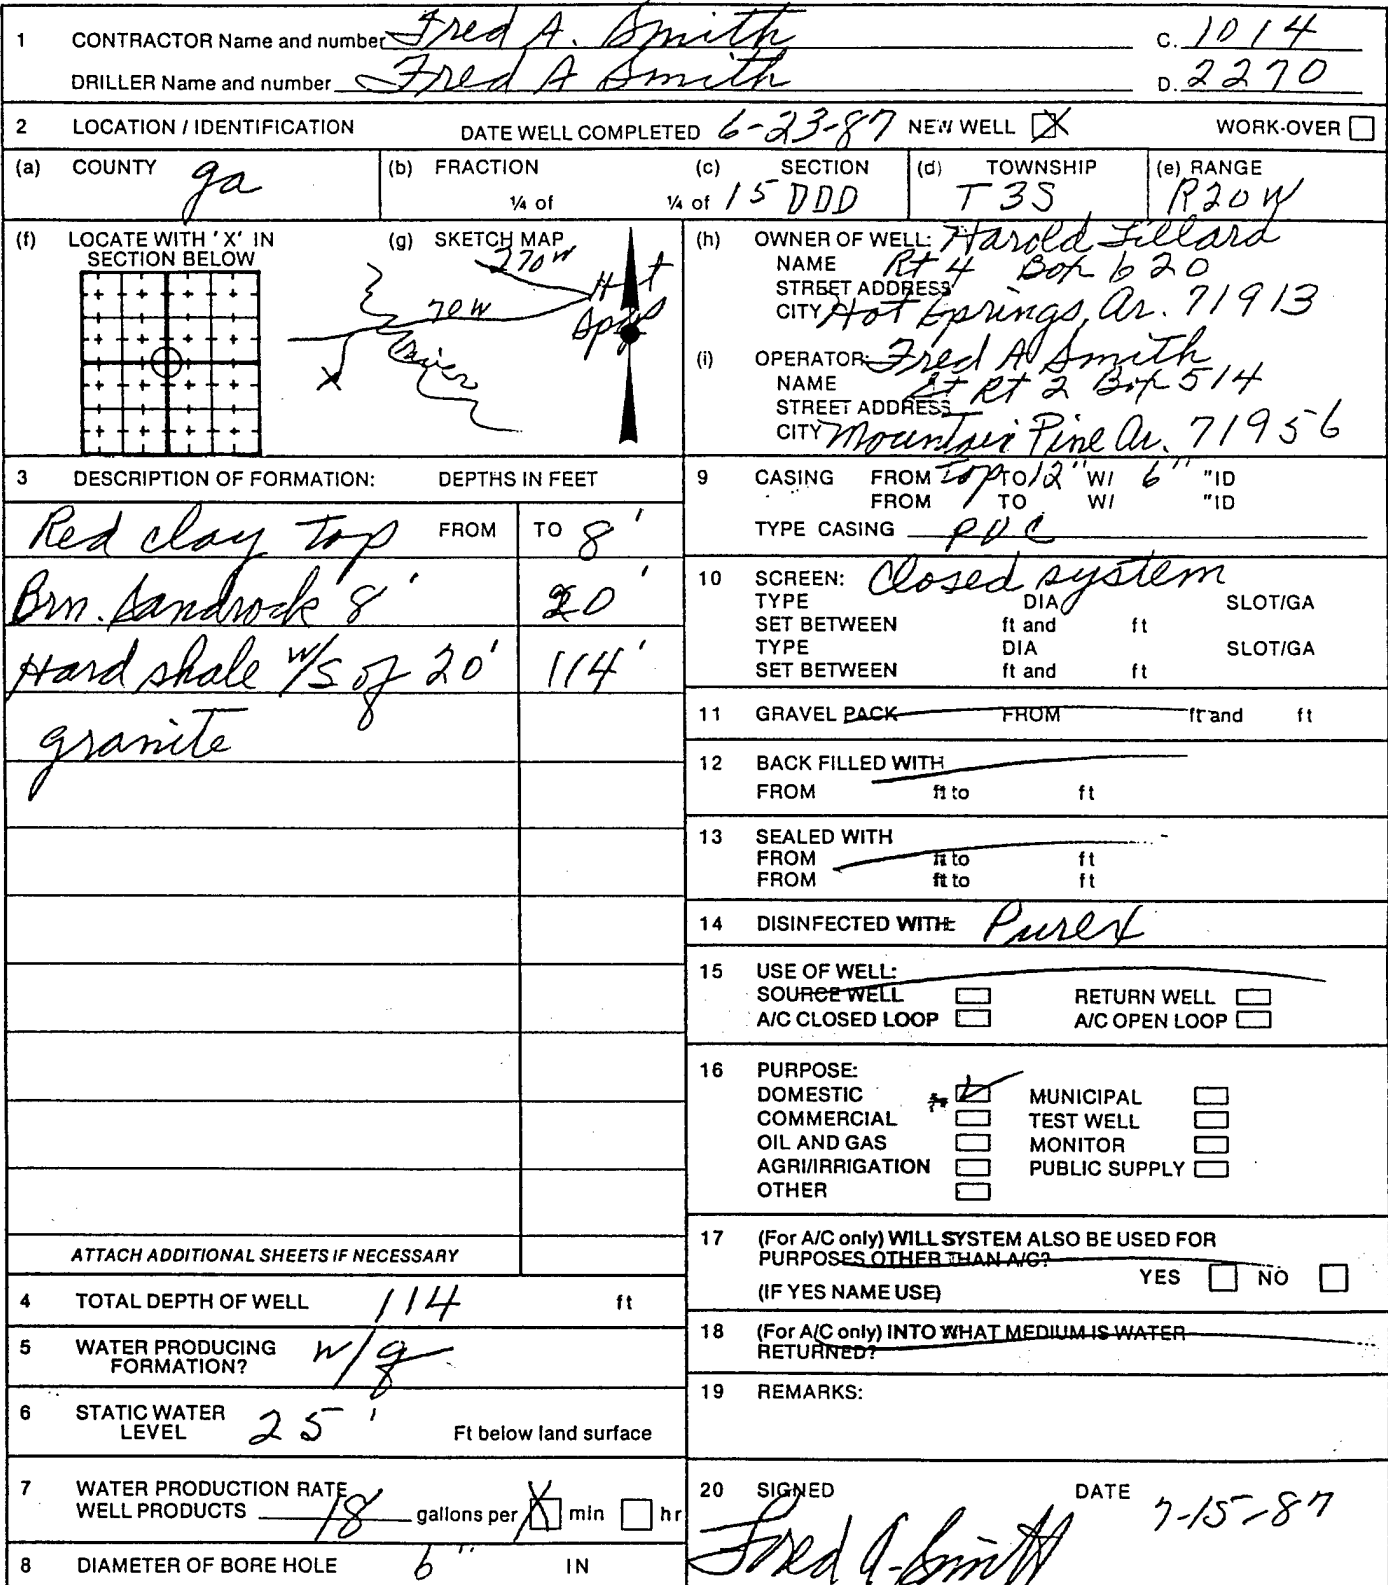 1 CONTRACTOR Name and number Fred A. Smith C. 1014
DRILLER Name and number Fred A Smith D. 2270
2 LOCATION / IDENTIFICATION DATE WELL COMPLETED 6-23-87 NEW WELL X WORK-OVER
(a) COUNTY ga (b) FRACTION ¼ of ¼ of (c) SECTION 15 DDD (d) TOWNSHIP T3S (e) RANGE R20W
(f) LOCATE WITH 'X' IN SECTION BELOW
(g) SKETCH MAP
270 W
70 W
Hot Spgs
X
(h) OWNER OF WELL: Harold
NAME Rt 4 Box 620
STREET ADDRESS
CITY Hot Springs, Ar. 71913
(i) OPERATOR: Fred A Smith
NAME St Rt 2 Box 514
STREET ADDRESS
CITY Mountain Pine Ar. 71956
3 DESCRIPTION OF FORMATION: DEPTHS IN FEET
Red clay top FROM TO 8'
Brn. Sandrock 8' 20'
Hard shale w/s of 20' 114'
granite
ATTACH ADDITIONAL SHEETS IF NECESSARY
4 TOTAL DEPTH OF WELL 114 ft
5 WATER PRODUCING FORMATION? w/g
6 STATIC WATER LEVEL 25' Ft below land surface
7 WATER PRODUCTION RATE
WELL PRODUCTS 18 gallons per X min hr
8 DIAMETER OF BORE HOLE 6" IN
9 CASING FROM Top TO 12" W/ 6" "ID
FROM TO W/ "ID
TYPE CASING PVC
10 SCREEN: Closed system
TYPE DIA SLOT/GA
SET BETWEEN ft and ft
TYPE DIA SLOT/GA
SET BETWEEN ft and ft
11 GRAVEL PACK FROM ft and ft
12 BACK FILLED WITH
FROM ft to ft
13 SEALED WITH
FROM ft to ft
FROM ft to ft
14 DISINFECTED WITH: Purex
15 USE OF WELL:
SOURCE WELL RETURN WELL
A/C CLOSED LOOP A/C OPEN LOOP
16 PURPOSE:
DOMESTIC MUNICIPAL
COMMERCIAL TEST WELL
OIL AND GAS MONITOR
AGRI/IRRIGATION PUBLIC SUPPLY
OTHER
17 (For A/C only) WILL SYSTEM ALSO BE USED FOR
PURPOSES OTHER THAN A/C?
YES NO
(IF YES NAME USE)
18 (For A/C only) INTO WHAT MEDIUM IS WATER
RETURNED?
19 REMARKS:
20 SIGNED DATE 7-15-87
Fred A. Smith